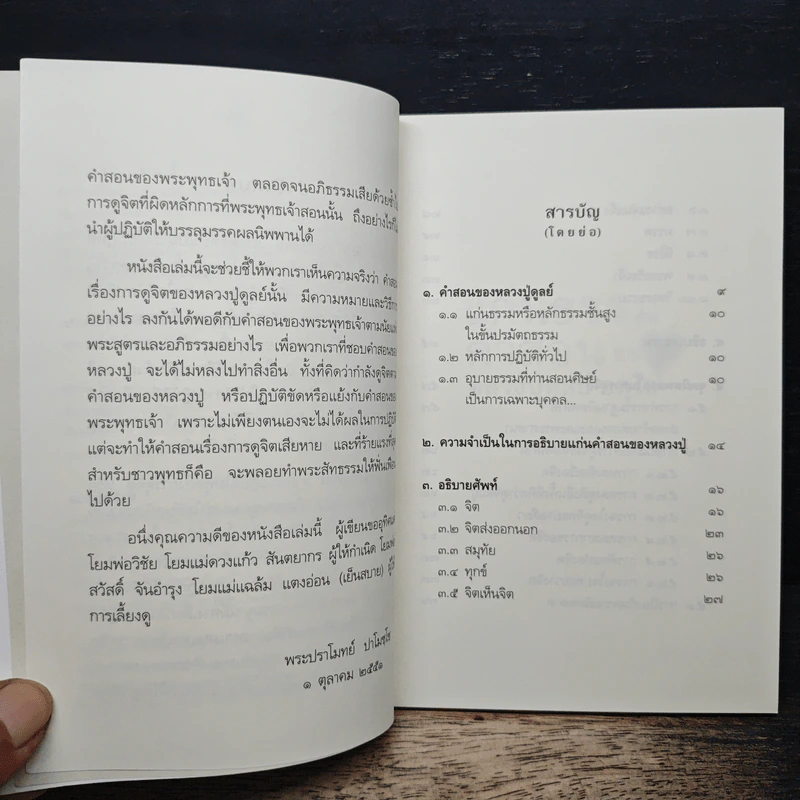 คำสอนของพระพุทธเจ้า ตลอดจนอภิธรรมเสียด้วยซ้ำไป
การดูจิตที่ผิดหลักการที่พระพุทธเจ้าสอนนั้น ถึงอย่างไรก็
นำผู้ปฏิบัติให้บรรลุมรรคผลนิพพานได้
หนังสือเล่มนี้จะช่วยชี้ให้พวกเราเห็นความจริงว่า
เรื่องการดูจิตของหลวงปู่ดูลย์นั้น มีความหมายและ
อย่างไร ลงกันได้พอดีกับคำสอนของพระพุทธเจ้าตาม
พระสูตรและอภิธรรมอย่างไร เพื่อพวกเราที่ชอบคำสอนของ
หลวงปู่ จะได้ไม่หลงไปทำสิ่งอื่น ทั้งที่คิดว่ากำลังดูจิต
คำสอนของหลวงปู่ หรือปฏิบัติขัดหรือแย้งกับคำสอนของ
พระพุทธเจ้า เพราะไม่เพียงตนเองจะไม่ได้ผลในการ
แต่จะทำให้คำสอนเรื่องการดูจิตเสียหาย และที่ร้ายแรง
สำหรับชาวพุทธก็คือ จะพลอยทำพระสัทธรรมให้ฟั่นเฟือน
ไปด้วย
อนึ่งคุณความดีของหนังสือเล่มนี้ ผู้เขียนขออุทิศ
โยมพ่อวิชัย โยมแม่ดวงแก้ว สันตยากร ผู้ให้กำเนิด
สวัสดิ์ จันอำรุง โยมแม่แฉล้ม แตงอ่อน (เย็นสบาย)
การเลี้ยงดู
พระปราโมทย์ ปาโมชฺโช
๑ ตุลาคม ๒๕๕๑
สารบัญ
(โดยย่อ)
๑. คำสอนของหลวงปู่ดูลย์ ๙
๑.๑ แก่นธรรมหรือหลักธรรมชั้นสูง ๑๐
ในขั้นปรมัตถธรรม
๑.๒ หลักการปฏิบัติทั่วไป ๑๐
๑.๓ อุบายธรรมที่ท่านสอนศิษย์ ๑๐
เป็นการเฉพาะบุคคล...
๒. ความจำเป็นในการอธิบายแก่นคำสอนของหลวงปู่ ๑๔
๓. อธิบายศัพท์ ๑๖
๓.๑ จิต ๑๖
๓.๒ จิตส่งออกนอก ๒๓
๓.๓ สมุทัย ๒๖
๓.๔ ทุกข์ ๒๖
๓.๕ จิตเห็นจิต ๒๗